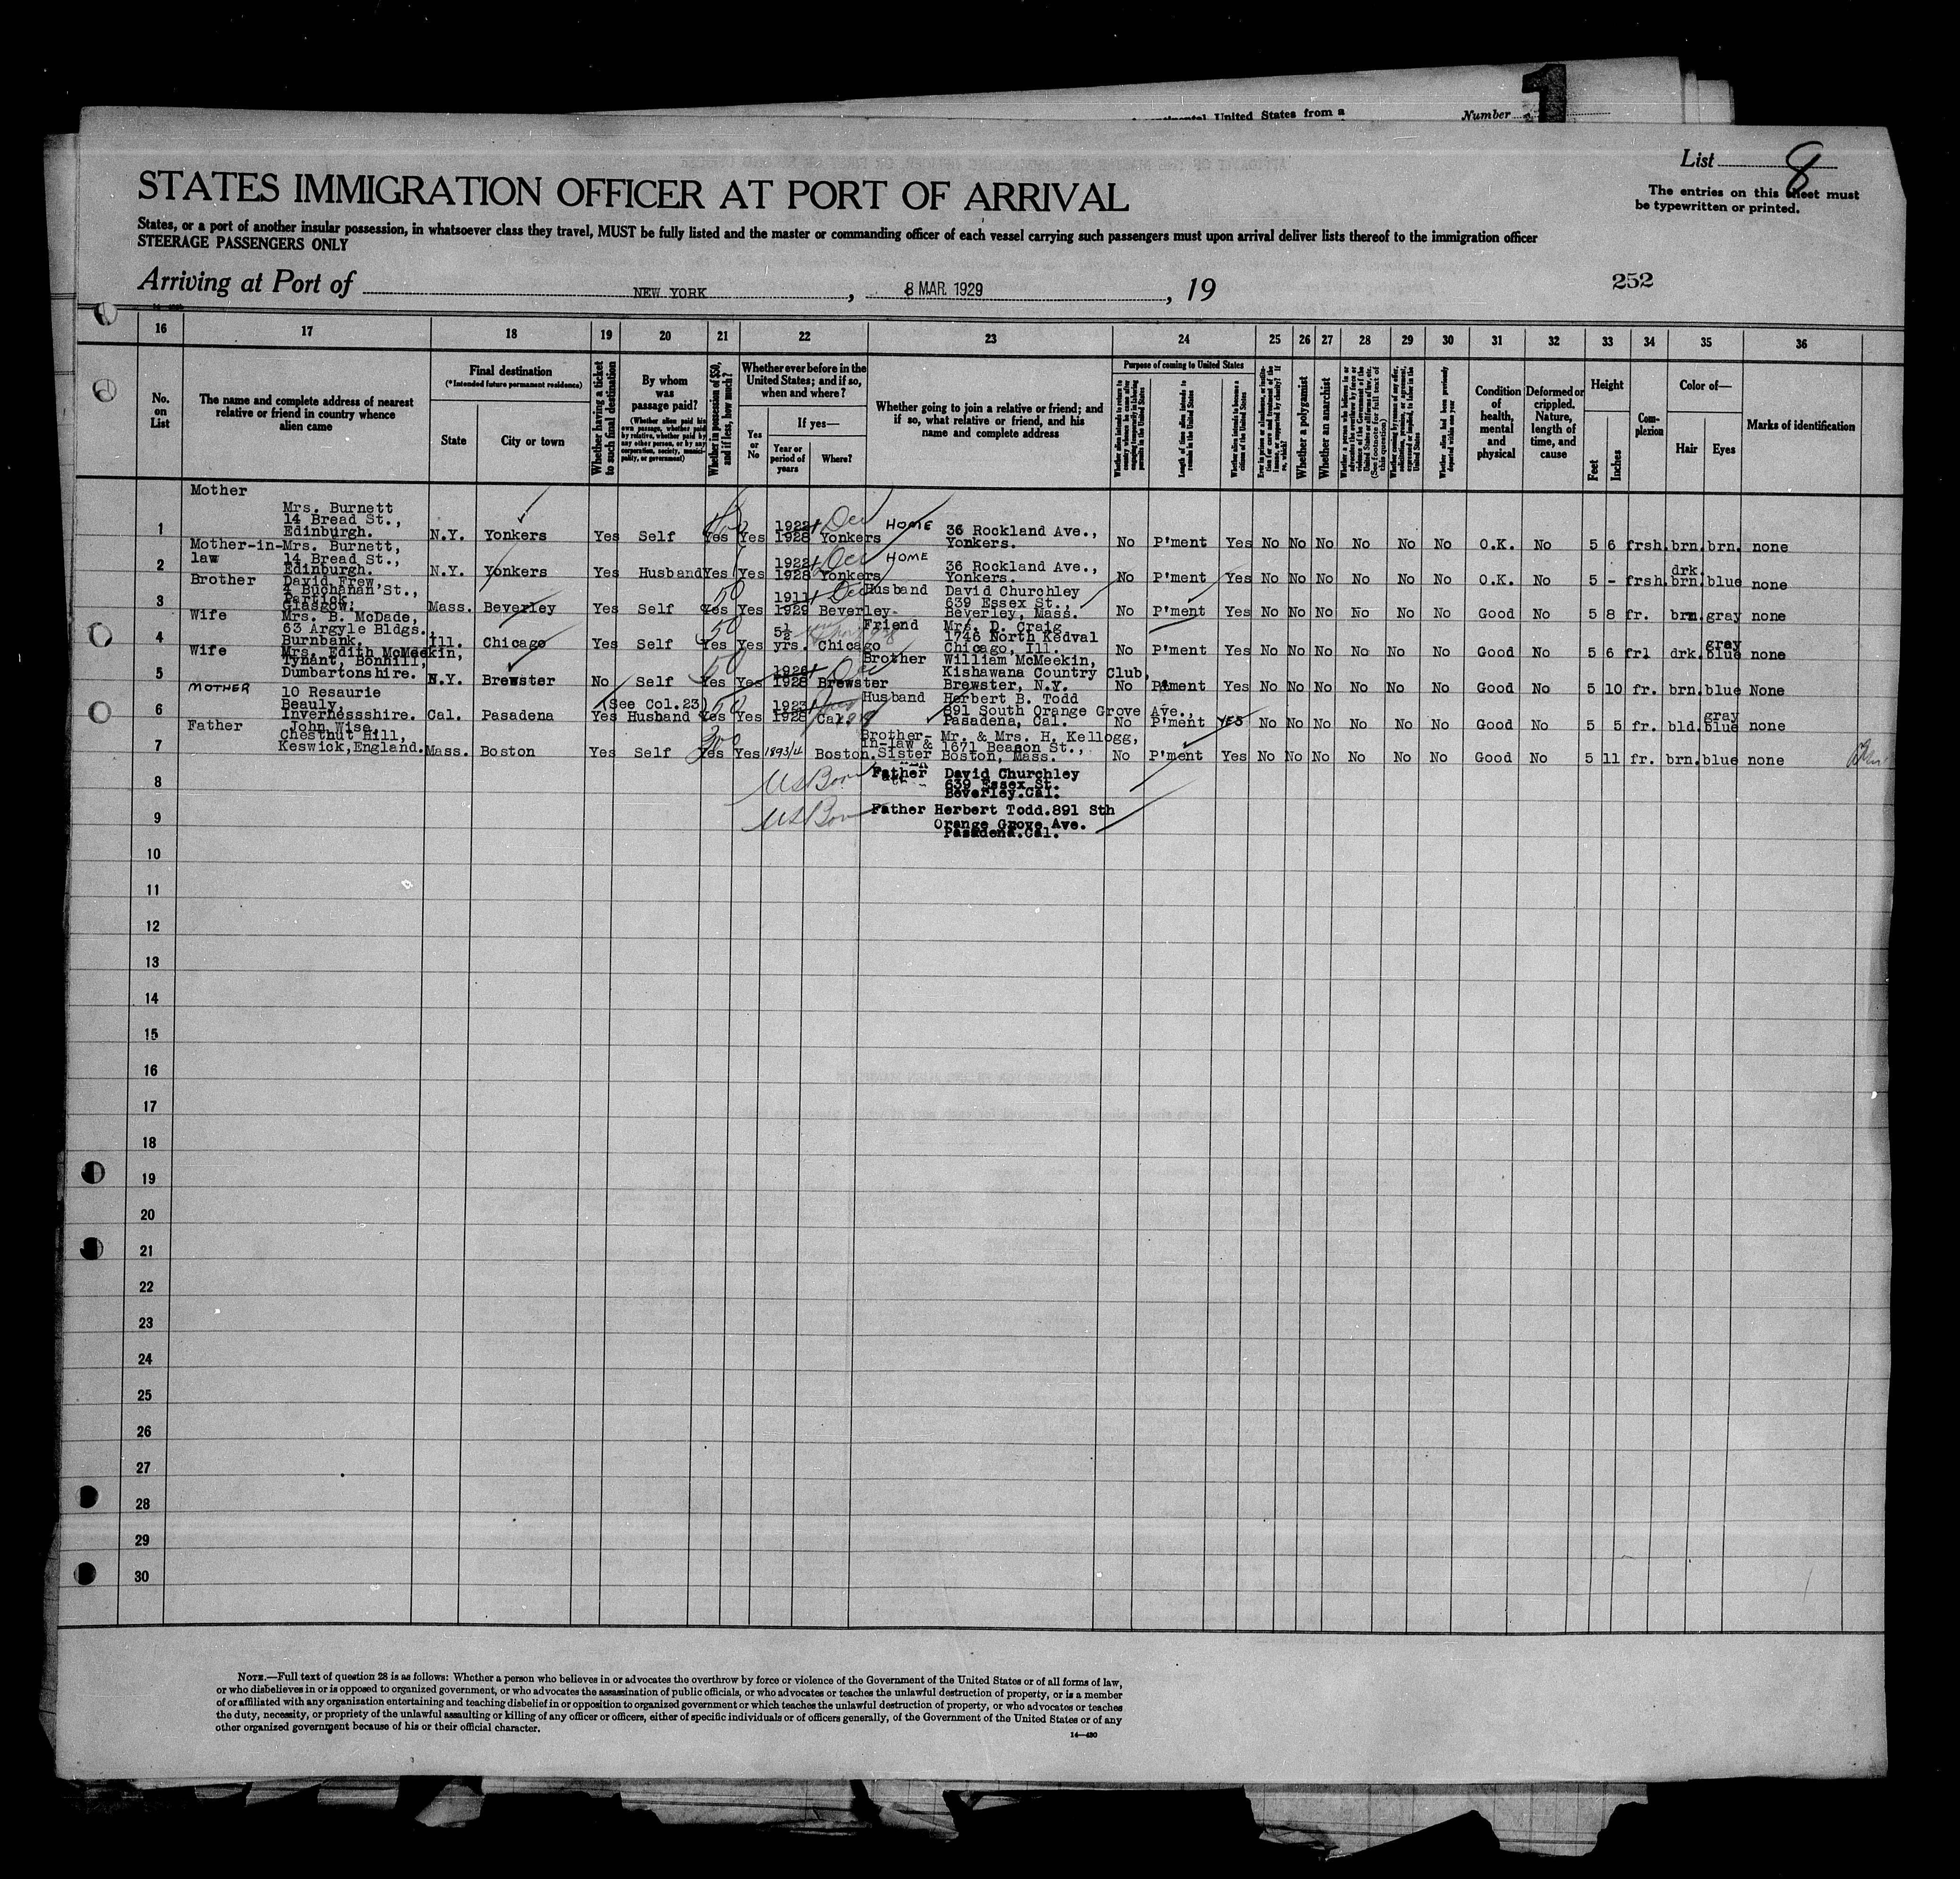 continental United States from a
Number
1
List 8
The entries on this sheet must
be typewritten or printed.
STATES IMMIGRATION OFFICER AT PORT OF ARRIVAL
States, or a port of another insular possession, in whatsoever class they travel, MUST be fully listed and the master or commanding officer of each vessel carrying such passengers must upon arrival deliver lists thereof to the immigration officer
STEERAGE PASSENGERS ONLY
Arriving at Port of NEW YORK, 8 MAR. 1929, 19
252
16 17 18 19 20 21 22 23 24 25 26 27 28 29 30 31 32 33 34 35 36
No. on List
The name and complete address of nearest relative or friend in country whence alien came
Final destination
(*Intended future permanent residence)
State
City or town
Whether having a ticket to such final destination
By whom was passage paid?
(Whether alien paid his own passage, whether paid by relative, whether paid by any other person, or by any corporation, society, municipality, or government)
Whether in possession of $50, and if less, how much?
Whether ever before in the United States; and if so, when and where?
Yes or No
If yes—
Year or period of years
Where?
Whether going to join a relative or friend; and if so, what relative or friend, and his name and complete address
Purpose of coming to United States
Length of time alien intends to remain in the United States
Whether alien intends to become a citizen of the United States
Whether a polygamist
Whether an anarchist
Whether alien had been previously deported within one year
Condition of health, mental and physical
Deformed or crippled. Nature, length of time, and cause
Height
Feet
Inches
Complexion
Color of—
Hair
Eyes
Marks of identification
1 Mother Mrs. Burnett 14 Bread St., Edinburgh. N.Y. Yonkers Yes Self Yes Yes 1922 1928 Dec Yonkers HOME 36 Rockland Ave., Yonkers. No P'ment Yes No No No No No No O.K. No 5 6 frsh. brn. brn. none
2 Mother-in-law Mrs. Burnett, 14 Bread St., Edinburgh. N.Y. Yonkers Yes Husband Yes Yes 1922 1928 Dec Yonkers HOME 36 Rockland Ave., Yonkers. No P'ment Yes No No No No No No O.K. No 5 - frsh. drk. brn. blue none
3 Brother David Frew, 4 Buchanan St., Partick, Glasgow. Mass. Beverley Yes Self 50 Yes Yes 1911 1929 Dec Beverley- Husband David Churchley 639 Essex St., Beverley, Mass. No P'ment Yes No No No No No No Good No 5 8 fr. brn. gray none
4 Wife Mrs. B. McDade, 63 Argyle Bldgs., Burnbank. Ill. Chicago Yes Self 50 Yes Yes 5½ yrs. Chicago Friend Mrs. D. Craig 1746 North Kedval Chicago, Ill. No P'ment Yes No No No No No No Good No 5 6 frl drk. gray blue none
5 Wife Mrs. Edith McMeekin, Tynant, Bonhill, Dumbartonshire. N.Y. Brewster No Self 50 Yes Yes 1926 1928 Dec Brewster Brother William McMeekin, Kishawana Country Club, Brewster, N.Y. No P'ment Yes No No No No No No Good No 5 10 fr. brn. blue None
6 MOTHER 10 Resaurie Beauly, Invernessshire. Cal. Pasadena (See Col.23) Yes Husband 50 Yes Yes 1923 1928 Cal. Husband Herbert B. Todd 891 South Orange Grove Ave., Pasadena, Cal. No P'ment YES No No No No No No Good No 5 5 fr. bld. gray blue none
7 Father John Wise, Chestnut Hill, Keswick, England. Mass. Boston Yes Self 300 Yes Yes 1893/4 Boston. Brother-in-law & Sister Mr. & Mrs. H. Kellogg, 1671 Beacon St., Boston, Mass. No P'ment Yes No No No No No No Good No 5 11 fr. brn. blue none
8 US Born Father David Churchley 639 Essex St. Beverley.Cal.
9 US Born Father Herbert Todd.891 Sth Orange Grove Ave. Pasadena.Cal.
10
11
12
13
14
15
16
17
18
19
20
21
22
23
24
25
26
27
28
29
30
NOTE.—Full text of question 28 is as follows: Whether a person who believes in or advocates the overthrow by force or violence of the Government of the United States or of all forms of law,
or who disbelieves in or is opposed to organized government, or who advocates the assassination of public officials, or who advocates or teaches the unlawful destruction of property, or is a member
of or affiliated with any organization entertaining and teaching disbelief in or opposition to organized government or which teaches the unlawful destruction of property, or who advocates or teaches
the duty, necessity, or propriety of the unlawful assaulting or killing of any officer or officers, either of specific individuals or of officers generally, of the Government of the United States or of any
other organized government because of his or their official character.
14—430